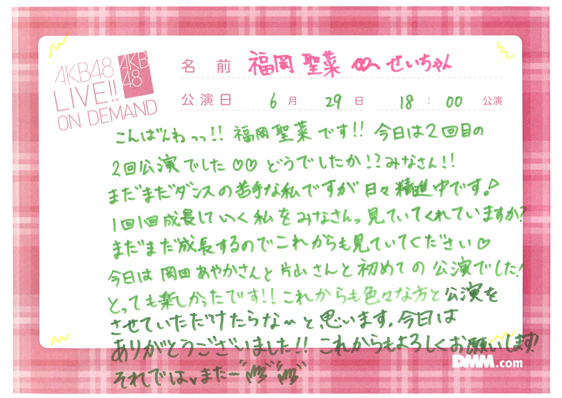 AKB48
LIVE!!
ON DEMAND
AKB
48
名 前 福岡 聖菜 せいちゃん
公演日 6 月 29 日 18 : 00 公演
こんばんわっっ!! 福岡聖菜です!! 今日は2回目の
2回公演でした♡♡ どうでしたか!? みなさん!!
まだまだダンスの苦手な私ですが日々精進中です♪
1回1回成長していく私をみなさんっ見ていてくれていますか?
まだまだ成長するのでこれからも見ていてください♡
今日は岡田あやかさんと片山さんと初めての公演でした!
とっても楽しかったです!! これからも色々な方と公演を
させていただけたらな〜と思います。今日は
ありがとうございました!! これからもよろしくお願いします!
それでは、またー
DMM.com